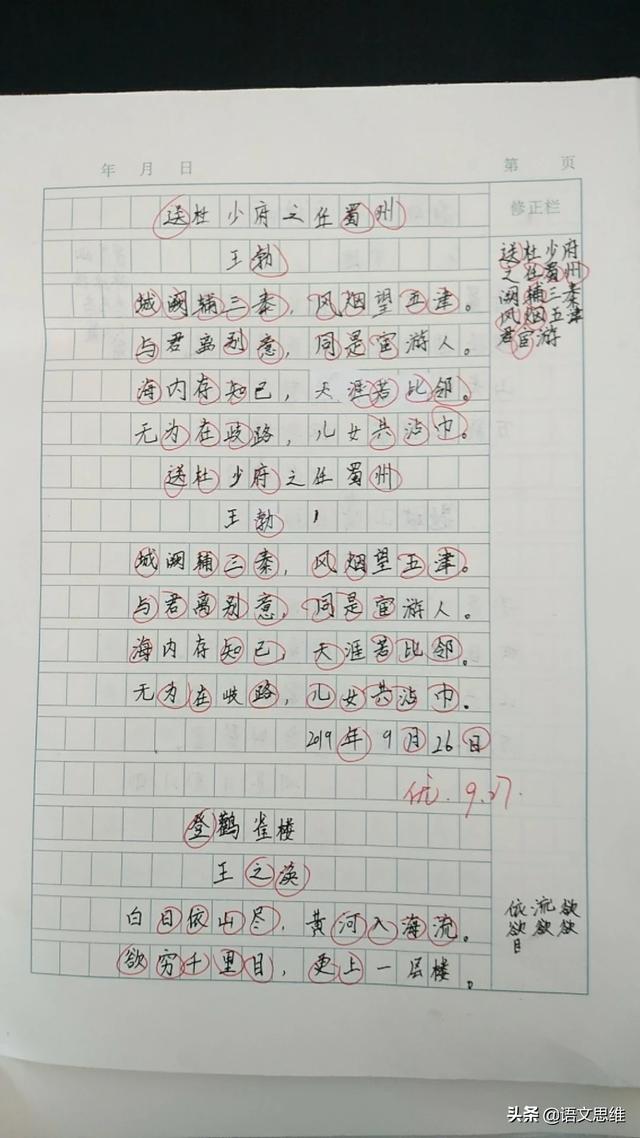 年 月 日 第 页
修正栏
送杜少府之任蜀州
王勃
城阙辅三秦，风烟望五津。
与君离别意，同是宦游人。
海内存知己，天涯若比邻。
无为在歧路，儿女共沾巾。
送杜少府之任蜀州
王勃
城阙辅三秦，风烟望五津。
与君离别意，同是宦游人。
海内存知己，天涯若比邻。
无为在歧路，儿女共沾巾。
2019年9月26日
优.9.27.
登鹳雀楼
王之涣
白日依山尽，黄河入海流。
欲穷千里目，更上一层楼。
送杜少府
之任蜀州
阙辅三秦
风烟五津
君宦游
依流欲
欲欲欲
日
头条@语文思维